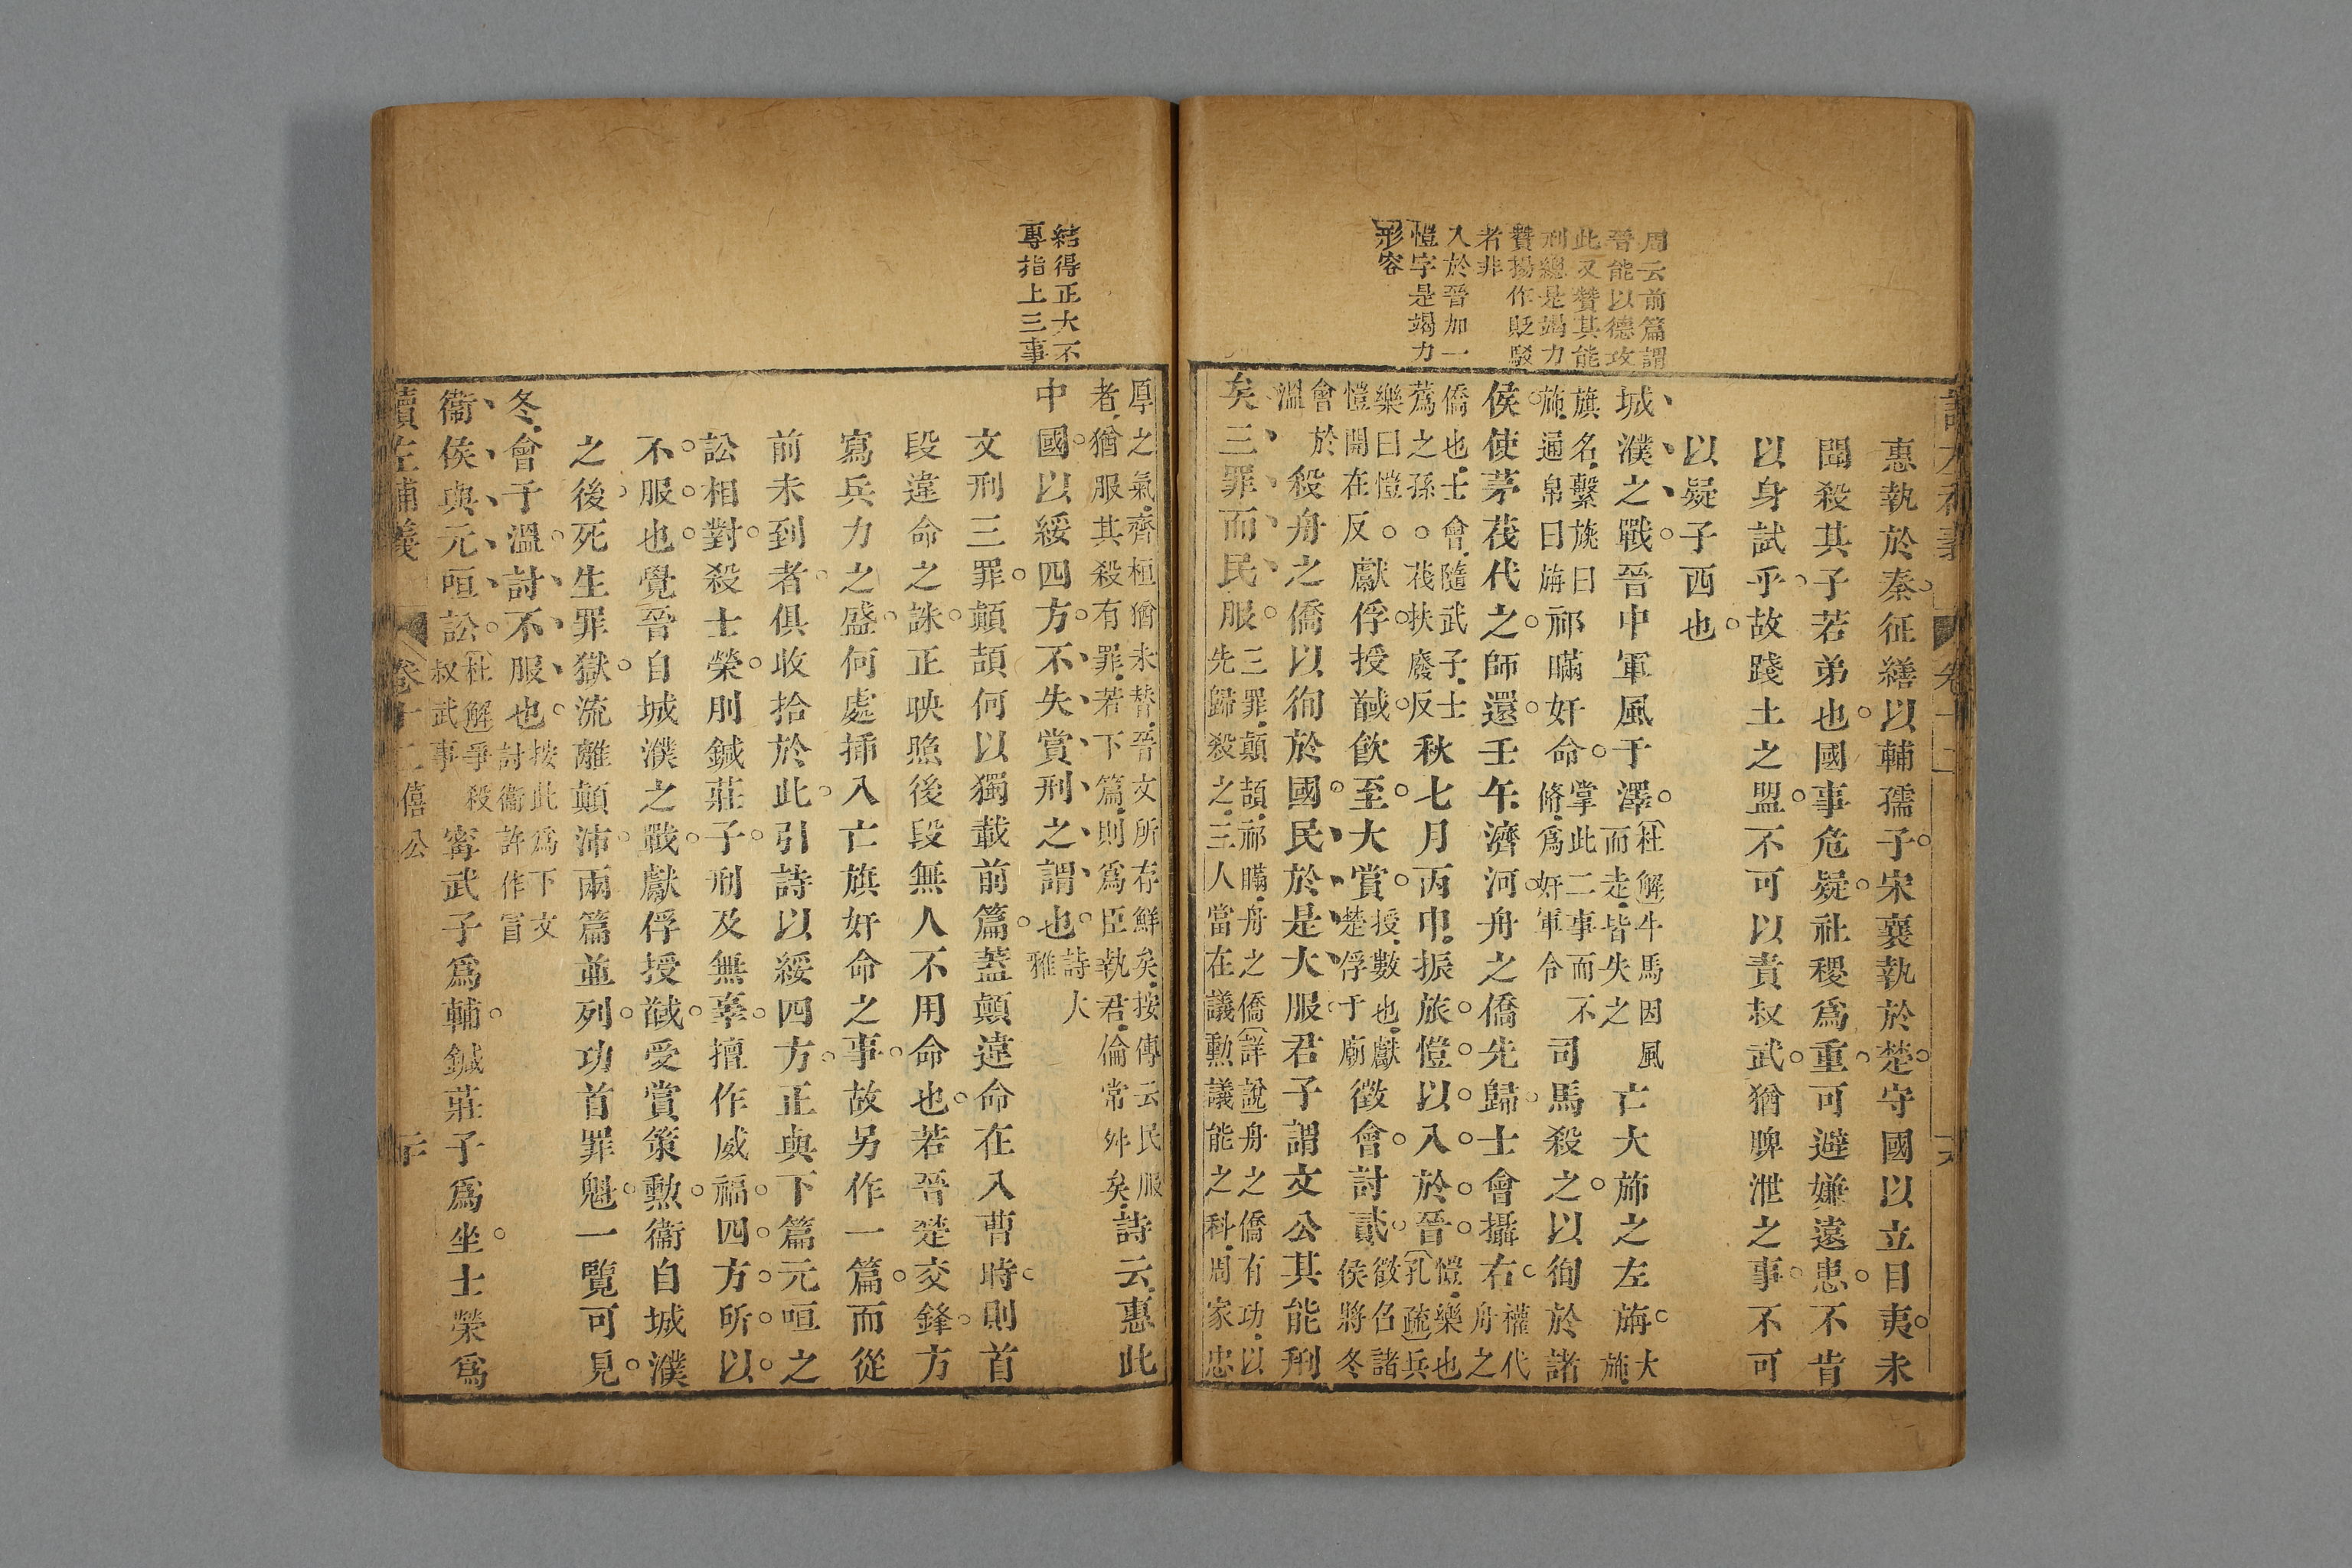 周云前篇謂
晉能以德攻
此又贊其能
刑總是竭力
贊揚作貶駁
者非
入於晉加一
愷字是竭力
形容
惠執於秦征繕以輔孺子宋襄執於楚守國以立目夷未
聞殺其子若弟也國事危疑社稷爲重可避嫌遠患不肯
以身試乎故踐土之盟不可以責叔武猶脾泄之事不可
以疑子西也
城濮之戰晉中軍風于澤杜解牛馬因風而走皆失之亡大斾之左旃大斾
旗名繫旐曰斾通帛曰旃祁瞞奸命掌此二事而不脩爲奸軍令司馬殺之以徇於諸
侯使茅茷代之師還壬午濟河舟之僑先歸士會攝右權代舟之
僑也士會隨武子士蔿之孫茷扶廢反秋七月丙申振旅愷以入於晉愷樂也孔疏兵
樂曰愷愷開在反獻俘授馘飲至大賞授數也獻楚俘于廟徵會討貳徵召諸侯將冬
會於溫殺舟之僑以徇於國民於是大服君子謂文公其能刑
矣三罪而民服三罪顛頡祁瞞舟之僑詳說舟之僑有功以先歸殺之三人當在議勳議能之科周家忠
結得正大不
專指上三事
厚之氣齊桓猶未替晉文所存鮮矣按傳云民服者猶服其殺有罪若下篇則爲臣執君倫常舛矣詩云惠此
中國以綏四方不失賞刑之謂也詩大雅
文刑三罪顛頡何以獨載前篇蓋顛違命在入曹時則首
段違命之誅正映照後段無人不用命也若晉楚交鋒方
寫兵力之盛何處插入亡旗奸命之事故另作一篇而從
前未到者俱收拾於此引詩以綏四方正與下篇元咺之
訟相對殺士榮刖鍼莊子刑及無辜擅作威福四方所以
不服也覺晉自城濮之戰獻俘授馘受賞策勳衞自城濮
之後死生罪獄流離顛沛兩篇並列功首罪魁一覽可見
冬會于溫討不服也按此爲下文討衞許作冒
衞侯與元咺訟杜解爭殺叔武事甯武子爲輔鍼莊子爲坐士榮爲
讀左補義 卷十二 僖公